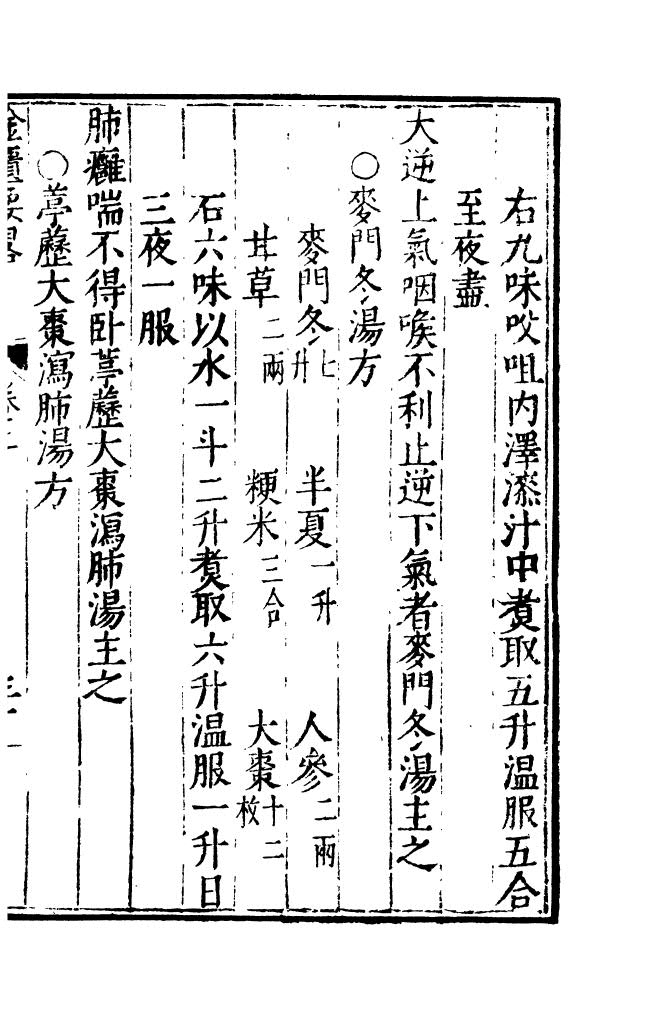 右九味㕮咀内澤漆汁中煑取五升温服五合
至夜盡
大逆上氣咽喉不利止逆下氣者麥門冬湯主之
○麥門冬湯方
麥門冬七升　半夏一升　人參二兩
甘草二兩　粳米三合　大棗十二枚
右六味以水一斗二升煑取六升温服一升日
三夜一服
肺癰喘不得卧葶藶大棗瀉肺湯主之
○葶藶大棗瀉肺湯方